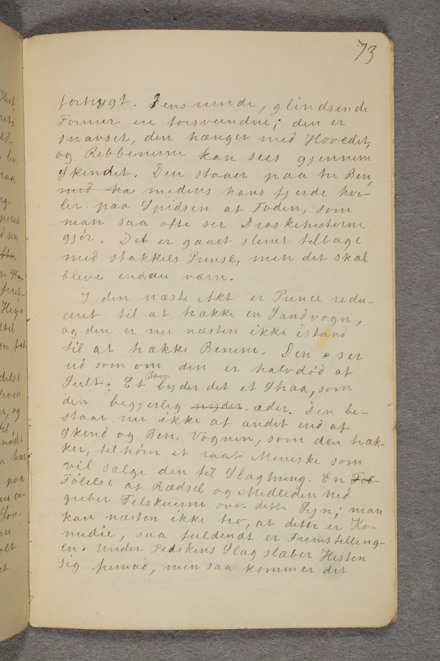 73
forhygt. Dens runde, glindsende
Former er forsvundne; den er
snavset, den hænger med Hovedet,
og Ribbenene kan sees gjennem
Skindet. Den staaer paa tre Ben,
medens hans fjerde hvi-
ler paa Spidsen af Foden, som
man saa ofte ser Droskehestene
gjör. Det er gaaet slemt tilbage
med stakkels Prince, men det skal
blive endnu værre.
I den næste Akt er Prince redu-
ceret til at trække en Sandvogn,
og den er nu næsten ikke istand
til at trække Benene. Den ser
ud som om den er halvdöd af
Sult. Et Barn byder det et Straa, som
den begjerlig æder. Den be-
staar nu ikke af andet end af
Skind og Ben. Vognen, som den træk-
ker, tilhörer et raat Menneske som
vil sælge den til Slagtning. En
Fölelse af Rædsel og Medlidenhed
griber Tilskuerne over dette Syn; man
kan næsten ikke tro, at dette er Ko-
medie, saa fuldendt er Fremstilling-
en. Under Pidskens Slag slæber Hesten
sig fremad, men saa kommer det